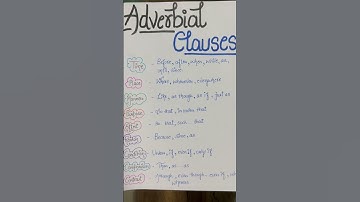 Adverbial
Clauses
Time - Before, after, when, while, as,
until, since
Place - Where, whenever, everywhere
Manner - Like, as though, as if, just as
Purpose - so that, in order that
- so that, such that
- Because, since, as
- Unless, if, even if, only if
- Than, as as
Though, even though, even if,
whereas